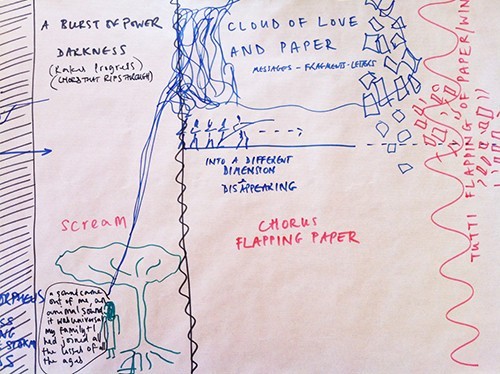 A BURST OF POWER
DARKNESS
(Rakes Progress)
(CHORD THAT RIPS THROUGH)
CLOUD OF LOVE
AND PAPER
MESSAGES - FRAGMENTS - LETTERS
INTO A DIFFERENT
DIMENSION
DISAPPEARING
scream
CHORUS
FLAPPING PAPER
TUTTI FLAPPING OF PAPER/WIN
ORPHEUS
SS
NG
STORM
S
a sound came
out of me, an
animal sound
it was universal
my family + I
had joined all
the
of all
the aged